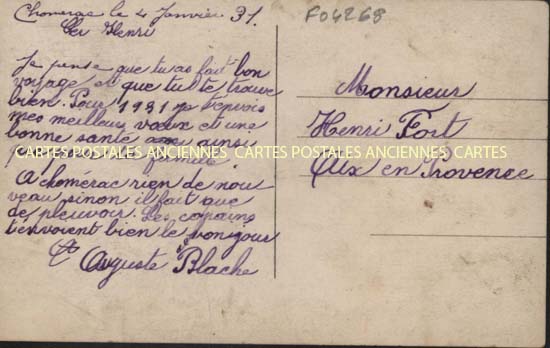 Chomerac le 4 Janvier 31.
Cer Henri
Je pense que tu as fait bon
voyage et que tu te trouve
bien. Pour 1931 je t'envois
mes meilleurs vœux et une
bonne santé ains
CARTES POSTALES ANCIENNES CARTES POSTALES ANCIENNES CARTES POSTALES ANCIENNES CARTES
A chomérac rien de nou
veau sinon il fait que
de pleuvoir. Les copains
t'envoient bien le bonjour
Auguste Blache
F04268
Monsieur
Henri Fort
Aix en Provence